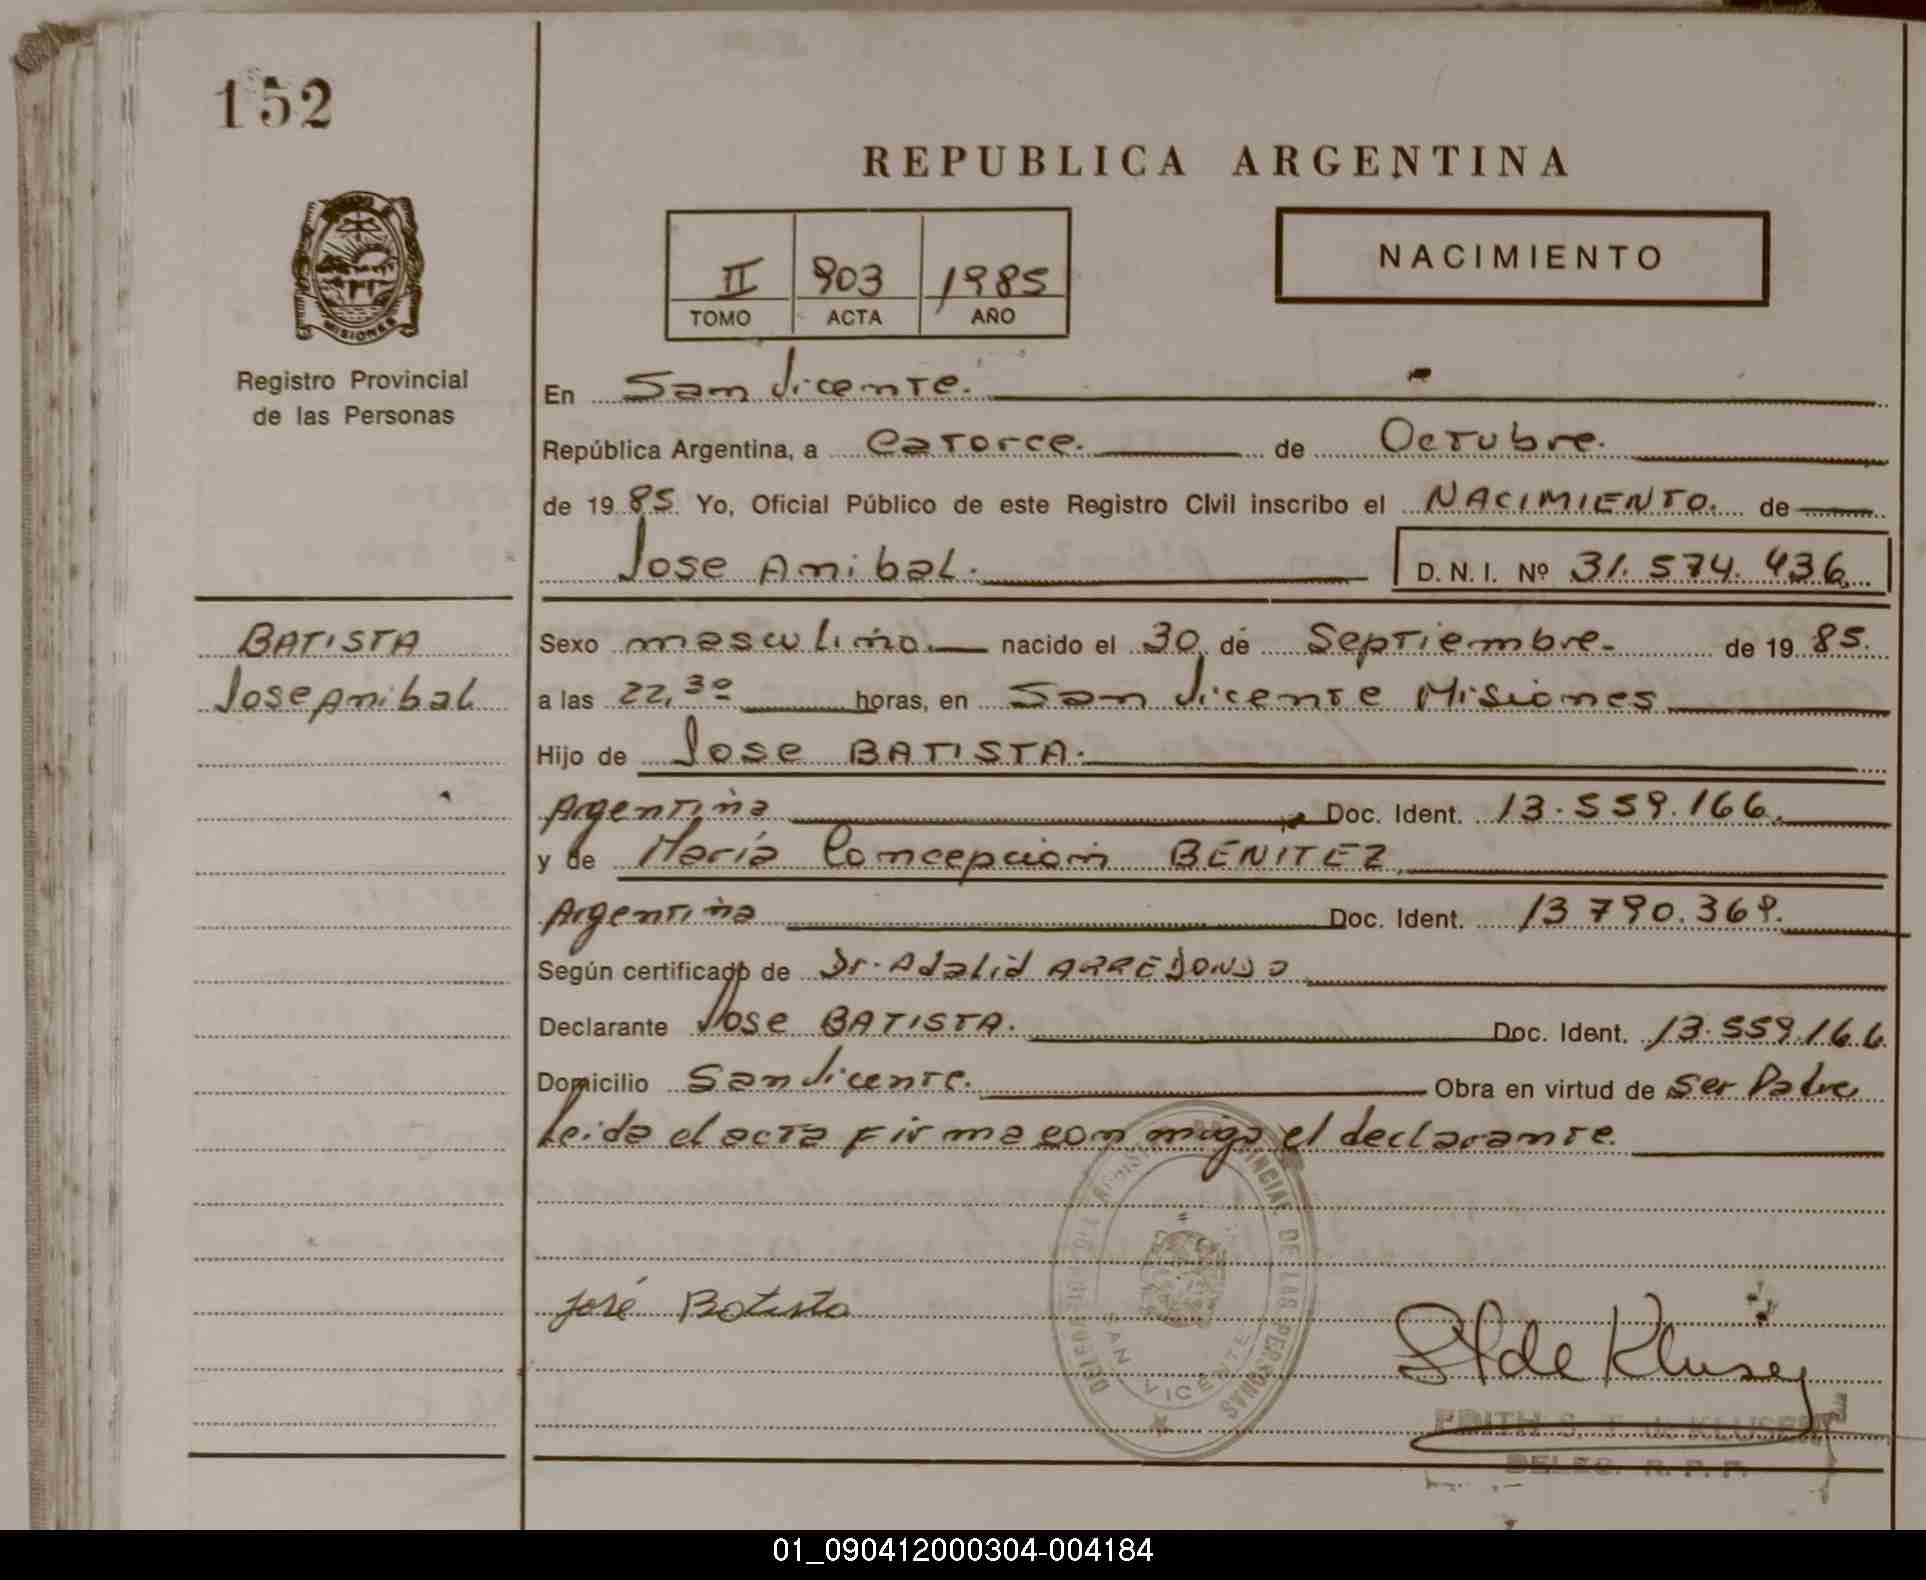 152
REPUBLICA ARGENTINA
NACIMIENTO
II 903 1985
TOMO ACTA AÑO
MISIONES
Registro Provincial
de las Personas
En San Vicente.
República Argentina, a Catorce. de Octubre.
de 1985. Yo, Oficial Público de este Registro Civil inscribo el NACIMIENTO. de
Jose Anibal. D. N. I. Nº 31.574.436
BATISTA
Jose Anibal
Sexo masculino. nacido el 30 de Septiembre. de 1985.
a las 22,30 horas, en San Vicente Misiones
Hijo de Jose BATISTA.
Argentina Doc. Ident. 13.559.166.
y de María Concepción BENITEZ
Argentina Doc. Ident. 13790.369.
Según certificado de Dr. Adalid ARREDONDO
Declarante Jose BATISTA. Doc. Ident. 13.559.166
Domicilio San Vicente. Obra en virtud de Ser Padre
Leida el acta firma con migo el declarante.
PROVINCIAL DE LAS PERSONAS
SAN VICENTE
José Batista
de Klusey
EDITH S. T. de KLUSEY
DELEG. R. P. P.
01_090412000304-004184